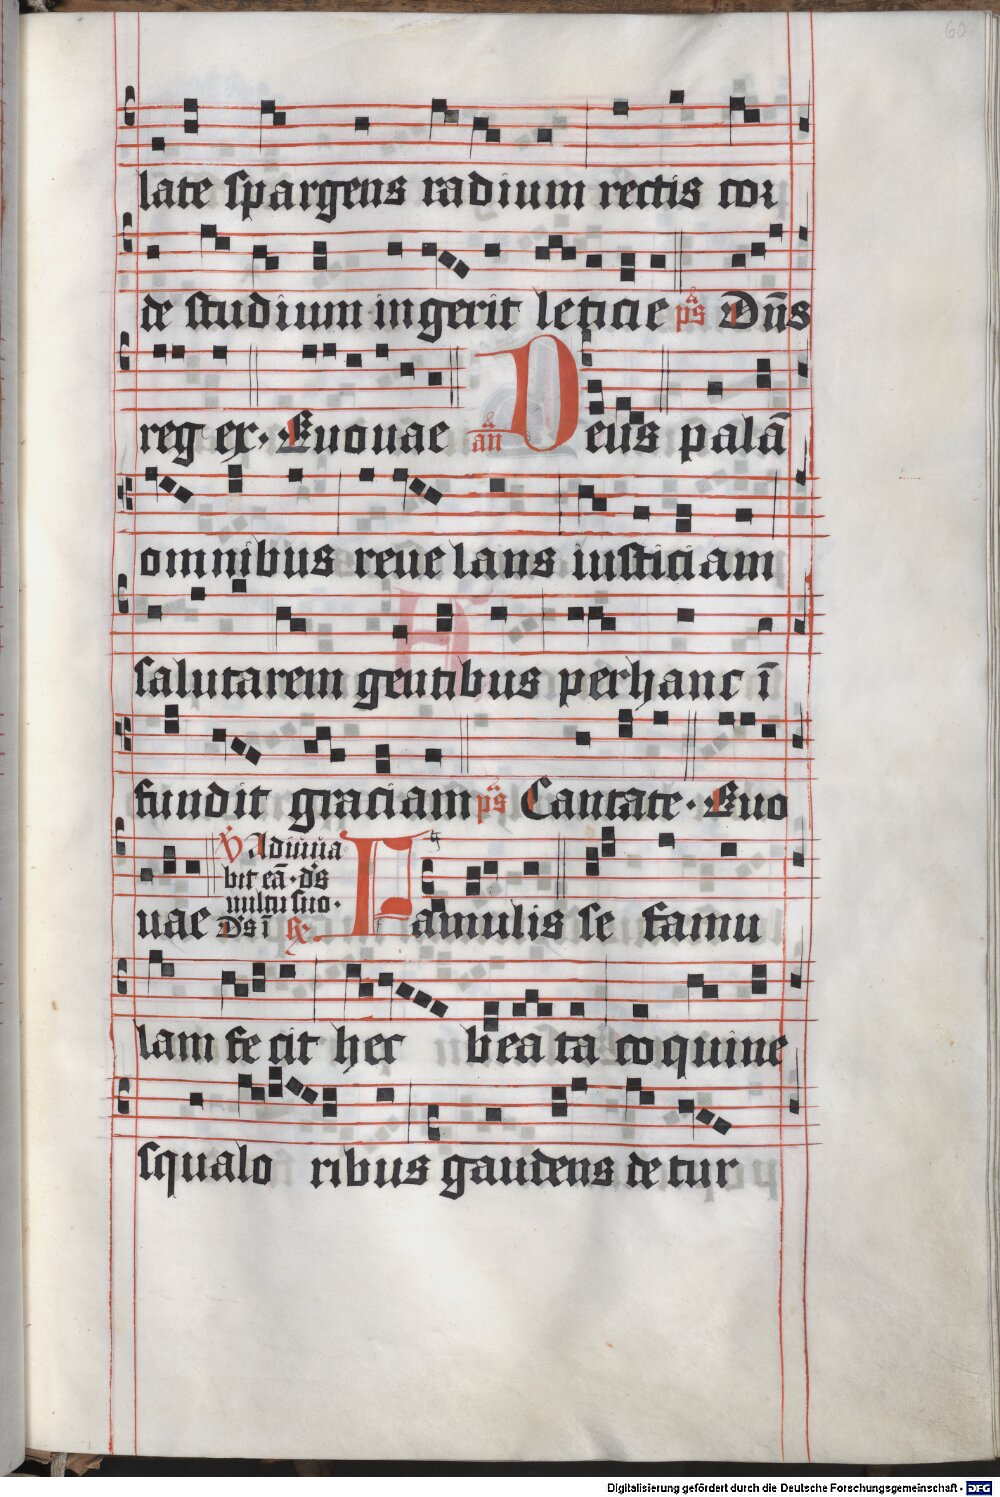 60
late spargens radium rectis cor
de studium ingerit leticie ps Dn̄s
reg ex. Euouae an̄ Deus palā
omnibus reuelans iusticiam
salutarem gentibus per hanc ī
fundit graciam ps Cantate. Euo
uae
V Adiuua
bit eā. ds
uultu suo.
Ds ī
Famulis se famu
lam fecit hec beata coquine
squaloribus gaudens detur
Digitalisierung gefördert durch die Deutsche Forschungsgemeinschaft - DFG